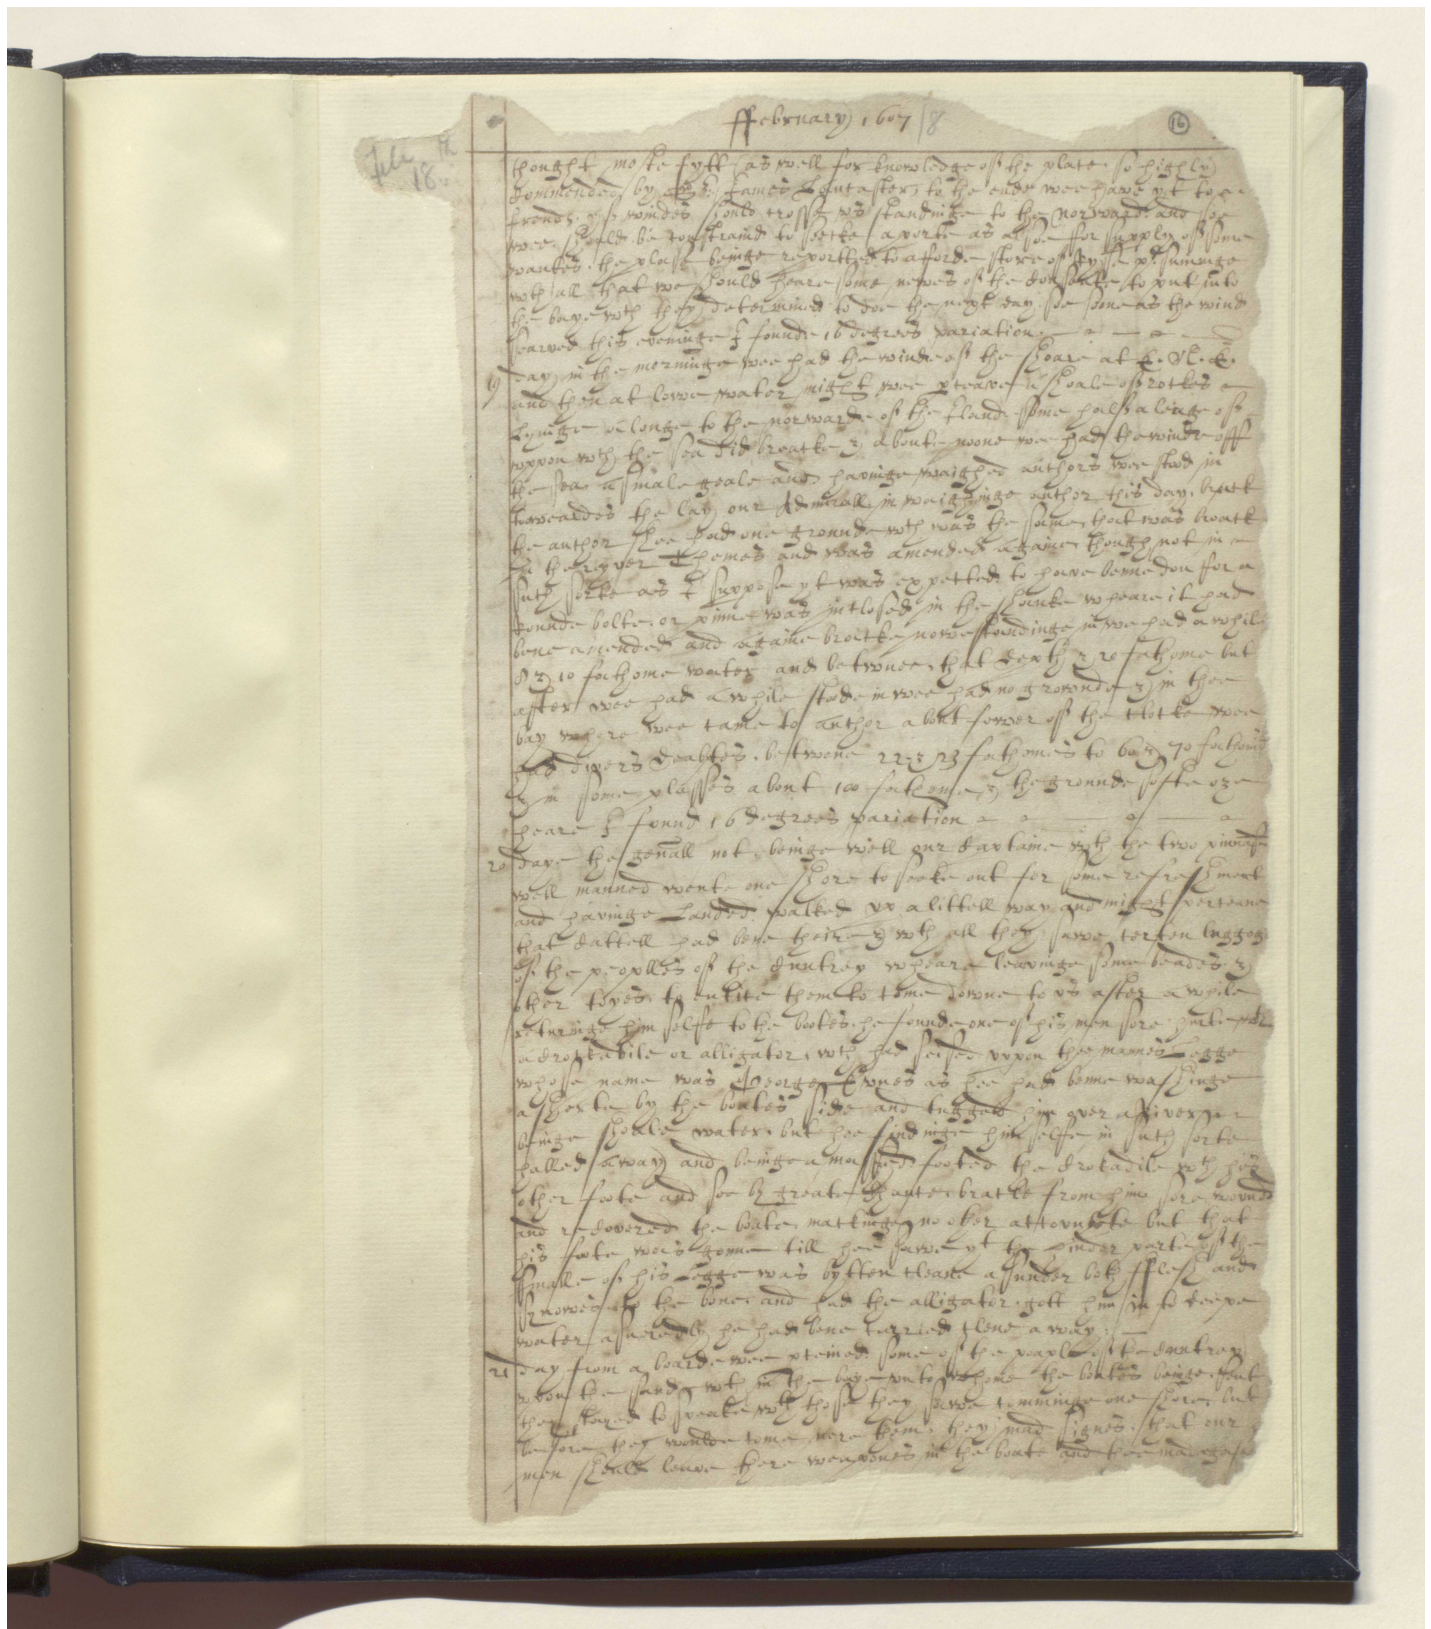 ffebruary 1607/8
16
Feb 18th
thought moste fytt (as well for knowledge of the place so highly
Commended by Sr James Lancaster, to the ende wee have yt to
frends yf windes should crosse us standinge to the Norward and soe
wee should be constraind to seecke a porte as alsoe for supply of some
wantes, the plase beinge reportted to afforde store of pr suminge
wth all that we should heare some newes of the Consente to put into
the baye wch they determined to doe the next day soe soone as the wind
searved this eveninge I founde 16 degrees variation
19 day in the morninge wee had the winde of the shoare at E. N. E.
and then at lowe water might wee pceave a shoale of rockes
Lyinge a longe to the norwarde of the Iland some halfe a leage of
uppon wch the sea did breacke & aboute noone wee had the winde off
the sea a smale geale and havinge waighed anchors wee stood in
towardes the bay our Admirall in waighinge anchor this day, brack
the anchor shee had one grounde wch was the same that was brack
in the ryver Themes and was amended againe though not in
such sorte as I suppose yt was expected to have benne don for a
rounde bolte or pinne was inclosed in the shanke wheare it had
bene amended and againe bracke nowe standinge in we had a while
8 & 10 fathome water and betwnee that depth & 20 fathome but
after wee had a while stoode in wee had no grownde & in thee
bay where wee came to anchor about fower of the clocke wee
had divers deabtes, betwene 22 & 23 fathomes to 60 & 70 fathoms
& in some plasses about 100 fathome, & the grounde softe oze
heare I found 16 degrees variation
20 daye the genall not beinge well our Captaine wth the two pinnasses
well manned wente one shore to seeke out for some refreshment
and havinge Landed walked up a littell way and might perceave
that Cattell had bene theire & wth all they sawe certen
of the peoplles of the Cuntrey wheare leavinge some beades &
other toyes to entice them to come downe to us after a while
returninge him selfe to the boates he founde one of his men sore hurte
a Crockadile or alligator, wch had seised uppon thee mannes Legge
whose name was George Evnes as hee had benne washinge
a sherte by the boates side and tugged him over
beinge shoale water, but hee findinge himselfe in such sorte
halled away and beinge a mased footed the Crokadile wth his
other foote and soe by greate Chance bracke from him sore wounded
and recovered the boate mackinge no other accoumbte but that
his foote was gonne till hee sawe yt the hinder parte of the
smalle of his Legge was bytten cleane asunder both fflesh and
synowes to the bone, and had the alligator gott him in to deepe
water asuredly he had bene carried clene away.
21 day from a boarde wee pceived some of the people of the Cuntrey
upon the sand wt in the baye unto whome the boates beinge sent
they stared to speake wth those they sawe comminge one shore, but
before they woulde come nere them, they mad signes, that our
men should leave there weapones in the boate and